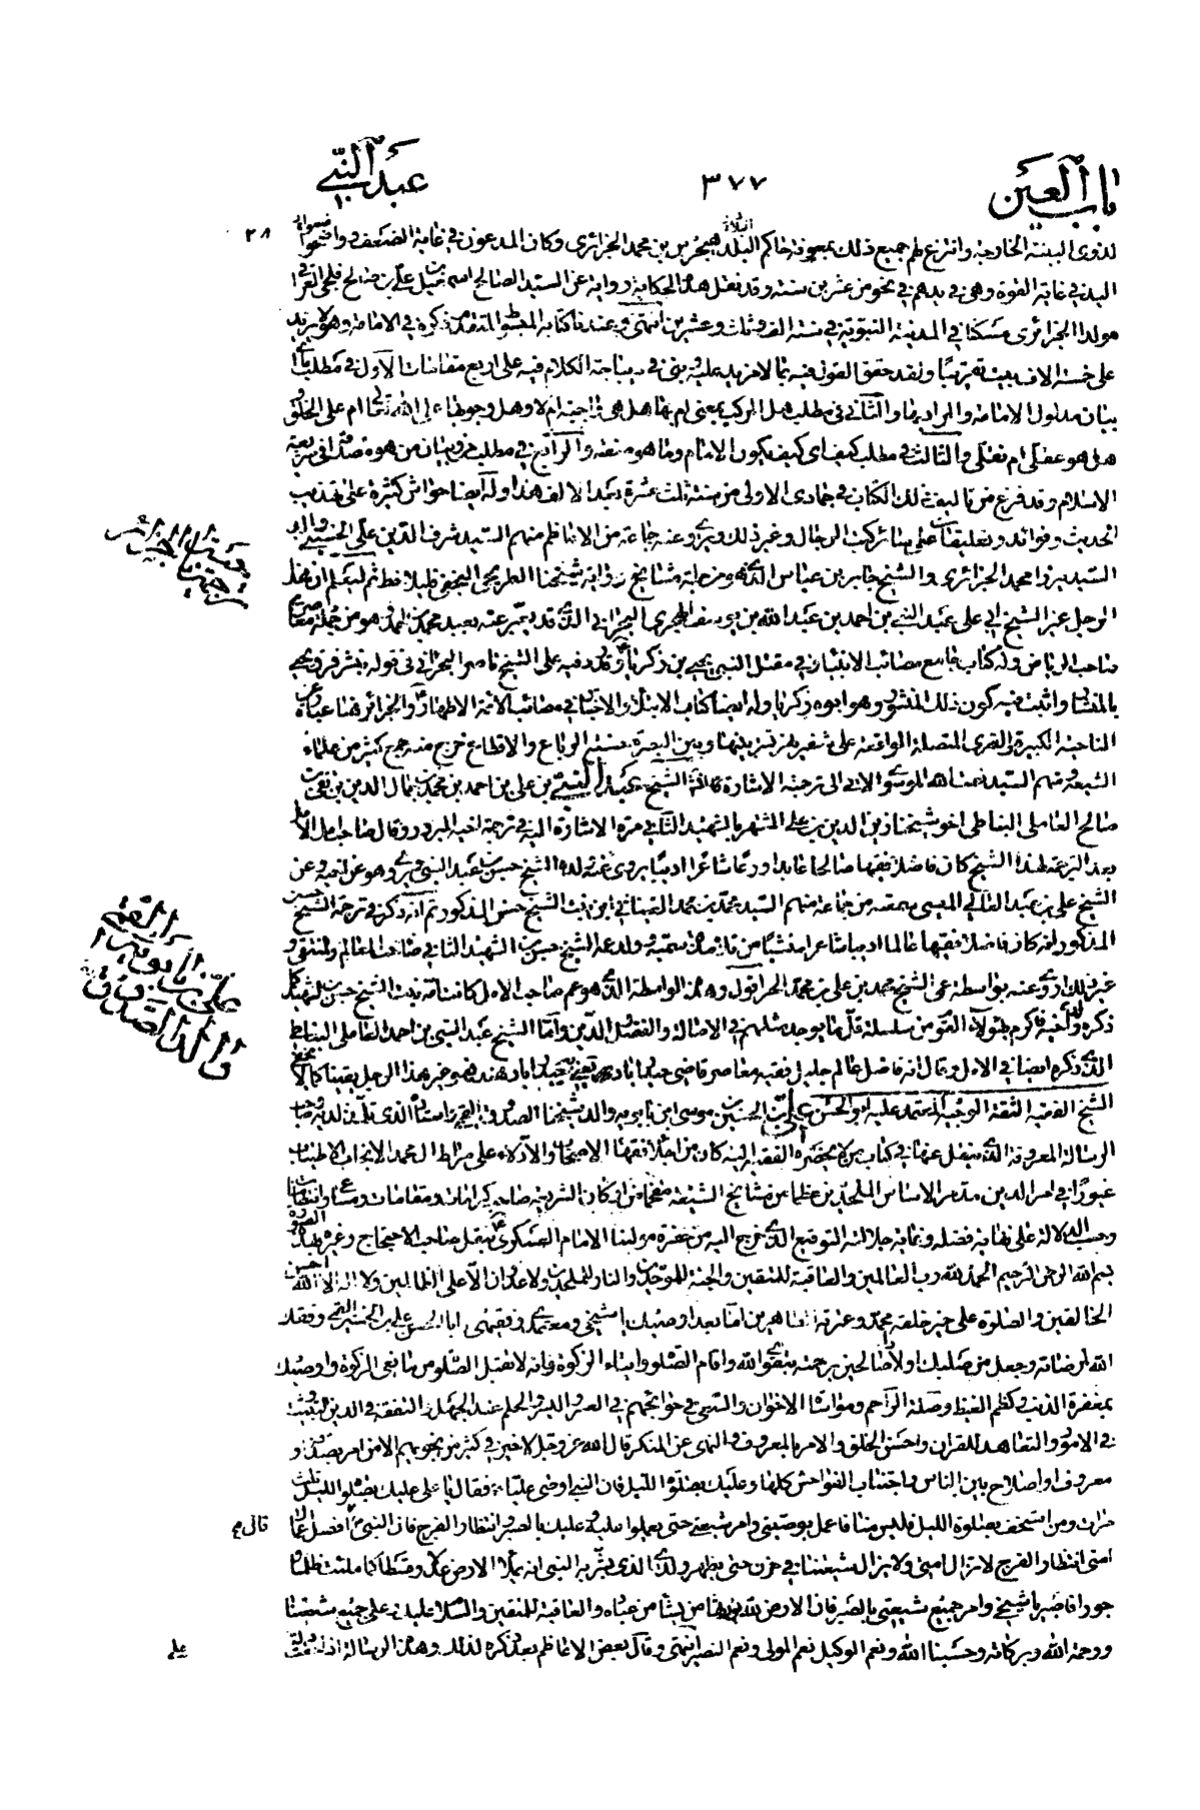 باب العين
٣٧٧
عبد النبي
لذوى البينة الخارجة وانتزع لهم جميع ذلك بمعونة حاكم البلد بحر بن محمد الجزائرى وكان المدعون فى غاية الضعف
اليد فى غاية القوة وهى فى يدهم فى نحو من عشرين سنة وقد نقل هذه الحكاية رواية عن السيد الصالح اسمعيل بن على بن صالح
مولدا الجزائرى مسكنا فى المدينة النبوية فى سنة الف وثلث وعشرين انتهى وعندنا كتابه المبسوط المتقدم ذكره فى الامامة وهو يزيد
على خمسة الاف بيت تقريبا ولقد حقق القول فيه بما لا مزيد عليه وبنى فى ديباجته الكلام فيه على اربع مقامات الاول فى مطلب
بيان مدلول الامامة والمراد بها والثانى فى مطلب هل المركب بمعنى انها هل هى واجبة ام لا وهل وجوبها على الله تعالى ام على الخلق
هل هو عقلى ام نقلى والثالث فى مطلب كيف اى كيف يكون الامام وما هو صفته والرابع فى مطلب من وبيان من هو متصف فى شريعة
الاسلام وقد فرغ من تاليف ذلك الكتاب فى جمادى الاولى من سنة ثلث عشرة بعد الالف هذا وله ايضا حواش كثيرة على تهذيب
الحديث وفوائد وتعليقات على سائر كتب الرجال وغير ذلك ويروى عنه جماعة من الاعاظم منهم السيد شرف الدين على الحسينى والد
السيد ميرزا محمد الجزائرى والشيخ جابر بن عباس النجفى ومن جملة مشايخ رواية شيخنا الطريحى النجفى قليلا فطن ثم ليعلم ان هذا
الرجل غير الشيخ ابى على عبد النبى بن احمد بن عبد الله بن يوسف الهجرى البحرانى الذى قد يعبر عنه بعبد محمد بن احمد وهو من جملة معاصرى
صاحب الرياض وله كتاب جامع مصائب الانبياء فى مقتل النبى يحيى بن زكريا وقد رد فيه على الشيخ ناصر البحرانى فى قوله بنشر فرق يحيى
بالمنشار واثبت فيه كون ذلك المنشور هو ابوه زكريا وله ايضا كتاب الابتلاء والاختبار فى مصائب الائمة الاطهار والجزائر هنا عبارة عن
الناحية الكبيرة والقرى المتصلة الواقعة على شفير نهر تستر بينها وبين البصرة حسنة الرباع والاقطاع خرج منه جمع كثير من علماء
الشيعة منهم السيد نعمة الله الموسوى الاتى الى ترجمة الاشارة فائدة الشيخ عبد النبى بن على بن احمد بن محمد بن جمال الدين بن تقى بن
صالح العاملى النباطى اخو شيخنا زين الدين بن على المشتهر بالشهيد الثانى مرة الاشارة اليه فى ترجمة اخيه المبرور وقال صاحب الامل
بعد الترجمة لهذا الشيخ كان فاضلا فقيها صالحا عابدا ورعا شاعرا اديبا يروى عنه ولده الشيخ حسن بن عبد النبى ويروى هو عن اخيه وعن
الشيخ على بن عبد العالى الميسى سمعته من جماعة منهم السيد محمد بن محمد العيناثى ابن بنت الشيخ حسن المذكور ثم انه ذكر فى ترجمة الشيخ حسن
المذكور انه كان فاضلا فقيها عالما اديبا شاعرا منشيا من تلامذة سميه ولد عمه الشيخ حسن بن الشهيد الثانى صاحب المعالم والمنتقى و
غير ذلك اروى عنه بواسطة عمى الشيخ محمد بن على بن محمد الحر اقول وهذه الواسطة الذى هو عم صاحب الامل كانت امه بنت الشيخ حسن بن الشهيد
ذكره فى اخيه فاكرم بهؤلاء القوم من سلسلة قل ما يوجد مثلهم فى الاصالة والفضل الدين واما الشيخ عبد النبى بن احمد العاملى النباطى
الذى ذكره ايضا فى الامل وقال انه فاضل عالم جليل فقيه معاصر قاضى حيدراباد يعنى حيدراباد هند فهو غير هذا الرجل يقينا كما لا يخفى
الشيخ الفقيه الثقة الوجيه المعتمد عليه ابو الحسن على بن الحسين بن موسى ابن بابويه والد شيخنا الصدوق القمى
الرسالة المعروفة التى ينقل عنها فى كتاب من لا يحضره الفقيه انه كان من اجلاء فقهاء الاصحاب والادلاء على صراط ال محمد الانجاب الاطياب
غيورا فى امر الدين مدمرا لاساس الملحدين عظيما من مشايخ الشيعة مفخما من اركان الشريعة صاحب كرامات ومقامات
وحسب الدلالة على نهاية فضله وغاية جلالته التوقيع الذى خرج اليه من حضرة مولينا الامام العسكرى بنقل صاحب الاحتجاج وغيره بهذه الصورة
بسم الله الرحمن الرحيم الحمد لله رب العالمين والعاقبة للمتقين والجنة للموحدين والنار للملحدين ولا عدوان الا على الظالمين ولا اله الا الله احسن
الخالقين والصلوة على خير خلقه محمد وعترته الطاهرين اما بعد اوصيك يا شيخى ومعتمدى وفقيهى ابا الحسن على بن الحسين القمى وفقك
الله لمرضاته وجعل من صلبك اولادا صالحين برحمته بتقوى الله واقام الصلوة وايتاء الزكوة فانه لا تقبل الصلوة من مانعى الزكوة واوصيك
بمغفرة الذنب وكظم الغيظ وصلة الرحم ومواساة الاخوان والسعى فى حوائجهم فى العسر واليسر والحلم عند الجهل والتفقه فى الدين والتثبت
فى الامور والتعاهد للقران وحسن الخلق والامر بالمعروف والنهى عن المنكر قال الله عز وجل لا خير فى كثير من نجويهم الا من امر بصدقة او
معروف او اصلاح بين الناس واجتناب الفواحش كلها وعليك بصلوة الليل فان النبى اوصى عليا فقال يا على عليك بصلوة الليل ثلث
مرات ومن استخف بصلوة الليل فليس منا فاعمل بوصيتى وامر شيعتى حتى يعملوا عليه وعليك بالصبر وانتظار الفرج فان النبى ص افضل اعمال
امتى انتظار الفرج لا تزال امتى ولا يزال شيعتنا فى حزن حتى يظهر ولدى الذى بشر به النبى انه يملأ الارض عدلا وقسطا كما ملئت ظلما و
جورا فاصبر يا شيخى وامر جميع شيعتى بالصبر فان الارض لله يورثها من يشاء من عباده والعاقبة للمتقين والسلام عليك وعلى جميع شيعتنا
ورحمة الله وبركاته وحسبنا الله ونعم الوكيل نعم المولى ونعم النصير انتهى وقال بعض الاعاظم بعد ذكره لذلك وهذه الرسالة
على بن بابويه القمى
والد الصدوق
قال